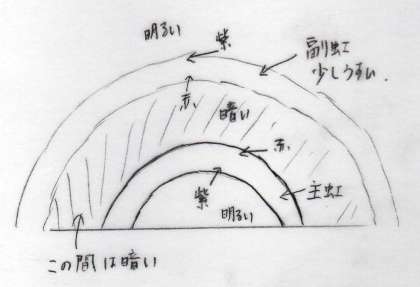 明るい
紫
副虹
少しうすい.
赤.
暗い
赤.
紫
主虹
明るい
この間は暗い